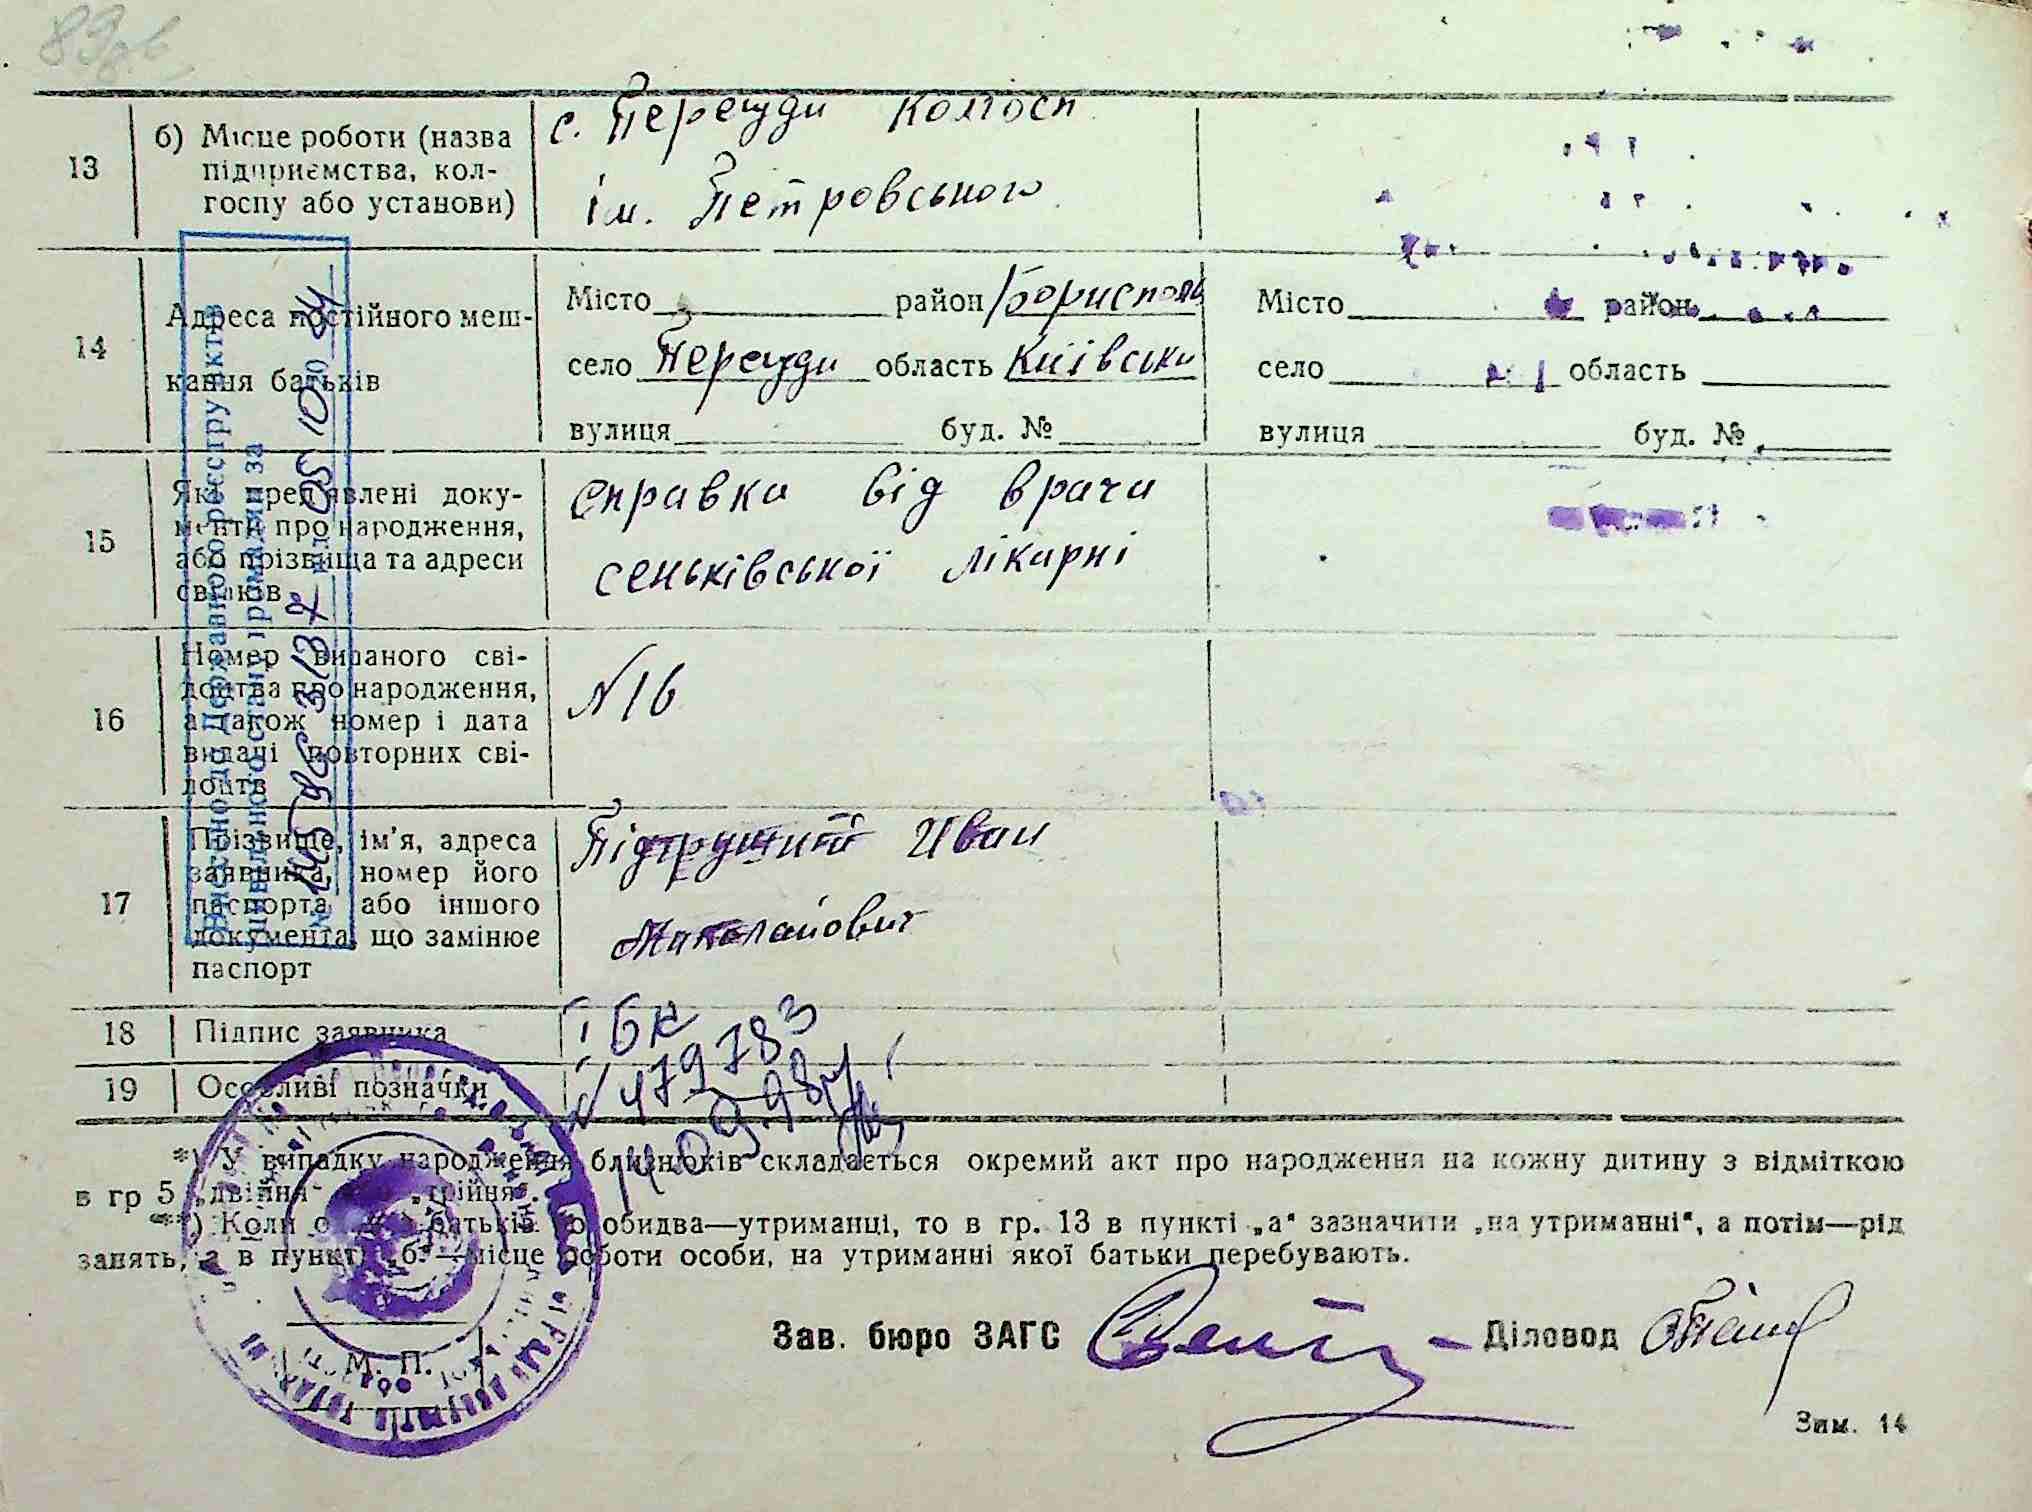 89зв
13
б) Місце роботи (назва
підприємства, кол-
госпу або установи)
с. Перегуди колгосп
ім. Петровського
14
Адреса постійного меш-
кання батьків
Місто район Бориспол
село Перегуди область Київськи
вулиця буд. №
Місто район
село область
вулиця буд. №
15
Які пред'явлені доку-
менти про народження,
або прізвища та адреси
свідків
справка від врача
сеньківської лікарні
16
Номер виданого сві-
доцтва про народження,
а також номер і дата
видачі повторних сві-
доцтв
N16
17
Прізвище, ім'я, адреса
заявника, номер його
паспорта або іншого
документа, що замінює
паспорт
Иван
Миколайович
18
Підпис заявника
19
Особливі позначки
І БК
N 479783
14.09.98
Внесено до Державного реєстру актів
цивільного стану громадян за
№
*) У випадку народження близнюків складається окремий акт про народження на кожну дитину з відміткою
в гр 5 „двійня" „трійня".
**) Коли батьків обидва—утриманці, то в гр. 13 в пункті „а" зазначити „на утриманні", а потім—рід
занять, а в пункті „б"—місце роботи особи, на утриманні якої батьки перебувають.
Зав. бюро ЗАГС Діловод
М. П.
Зим. 14